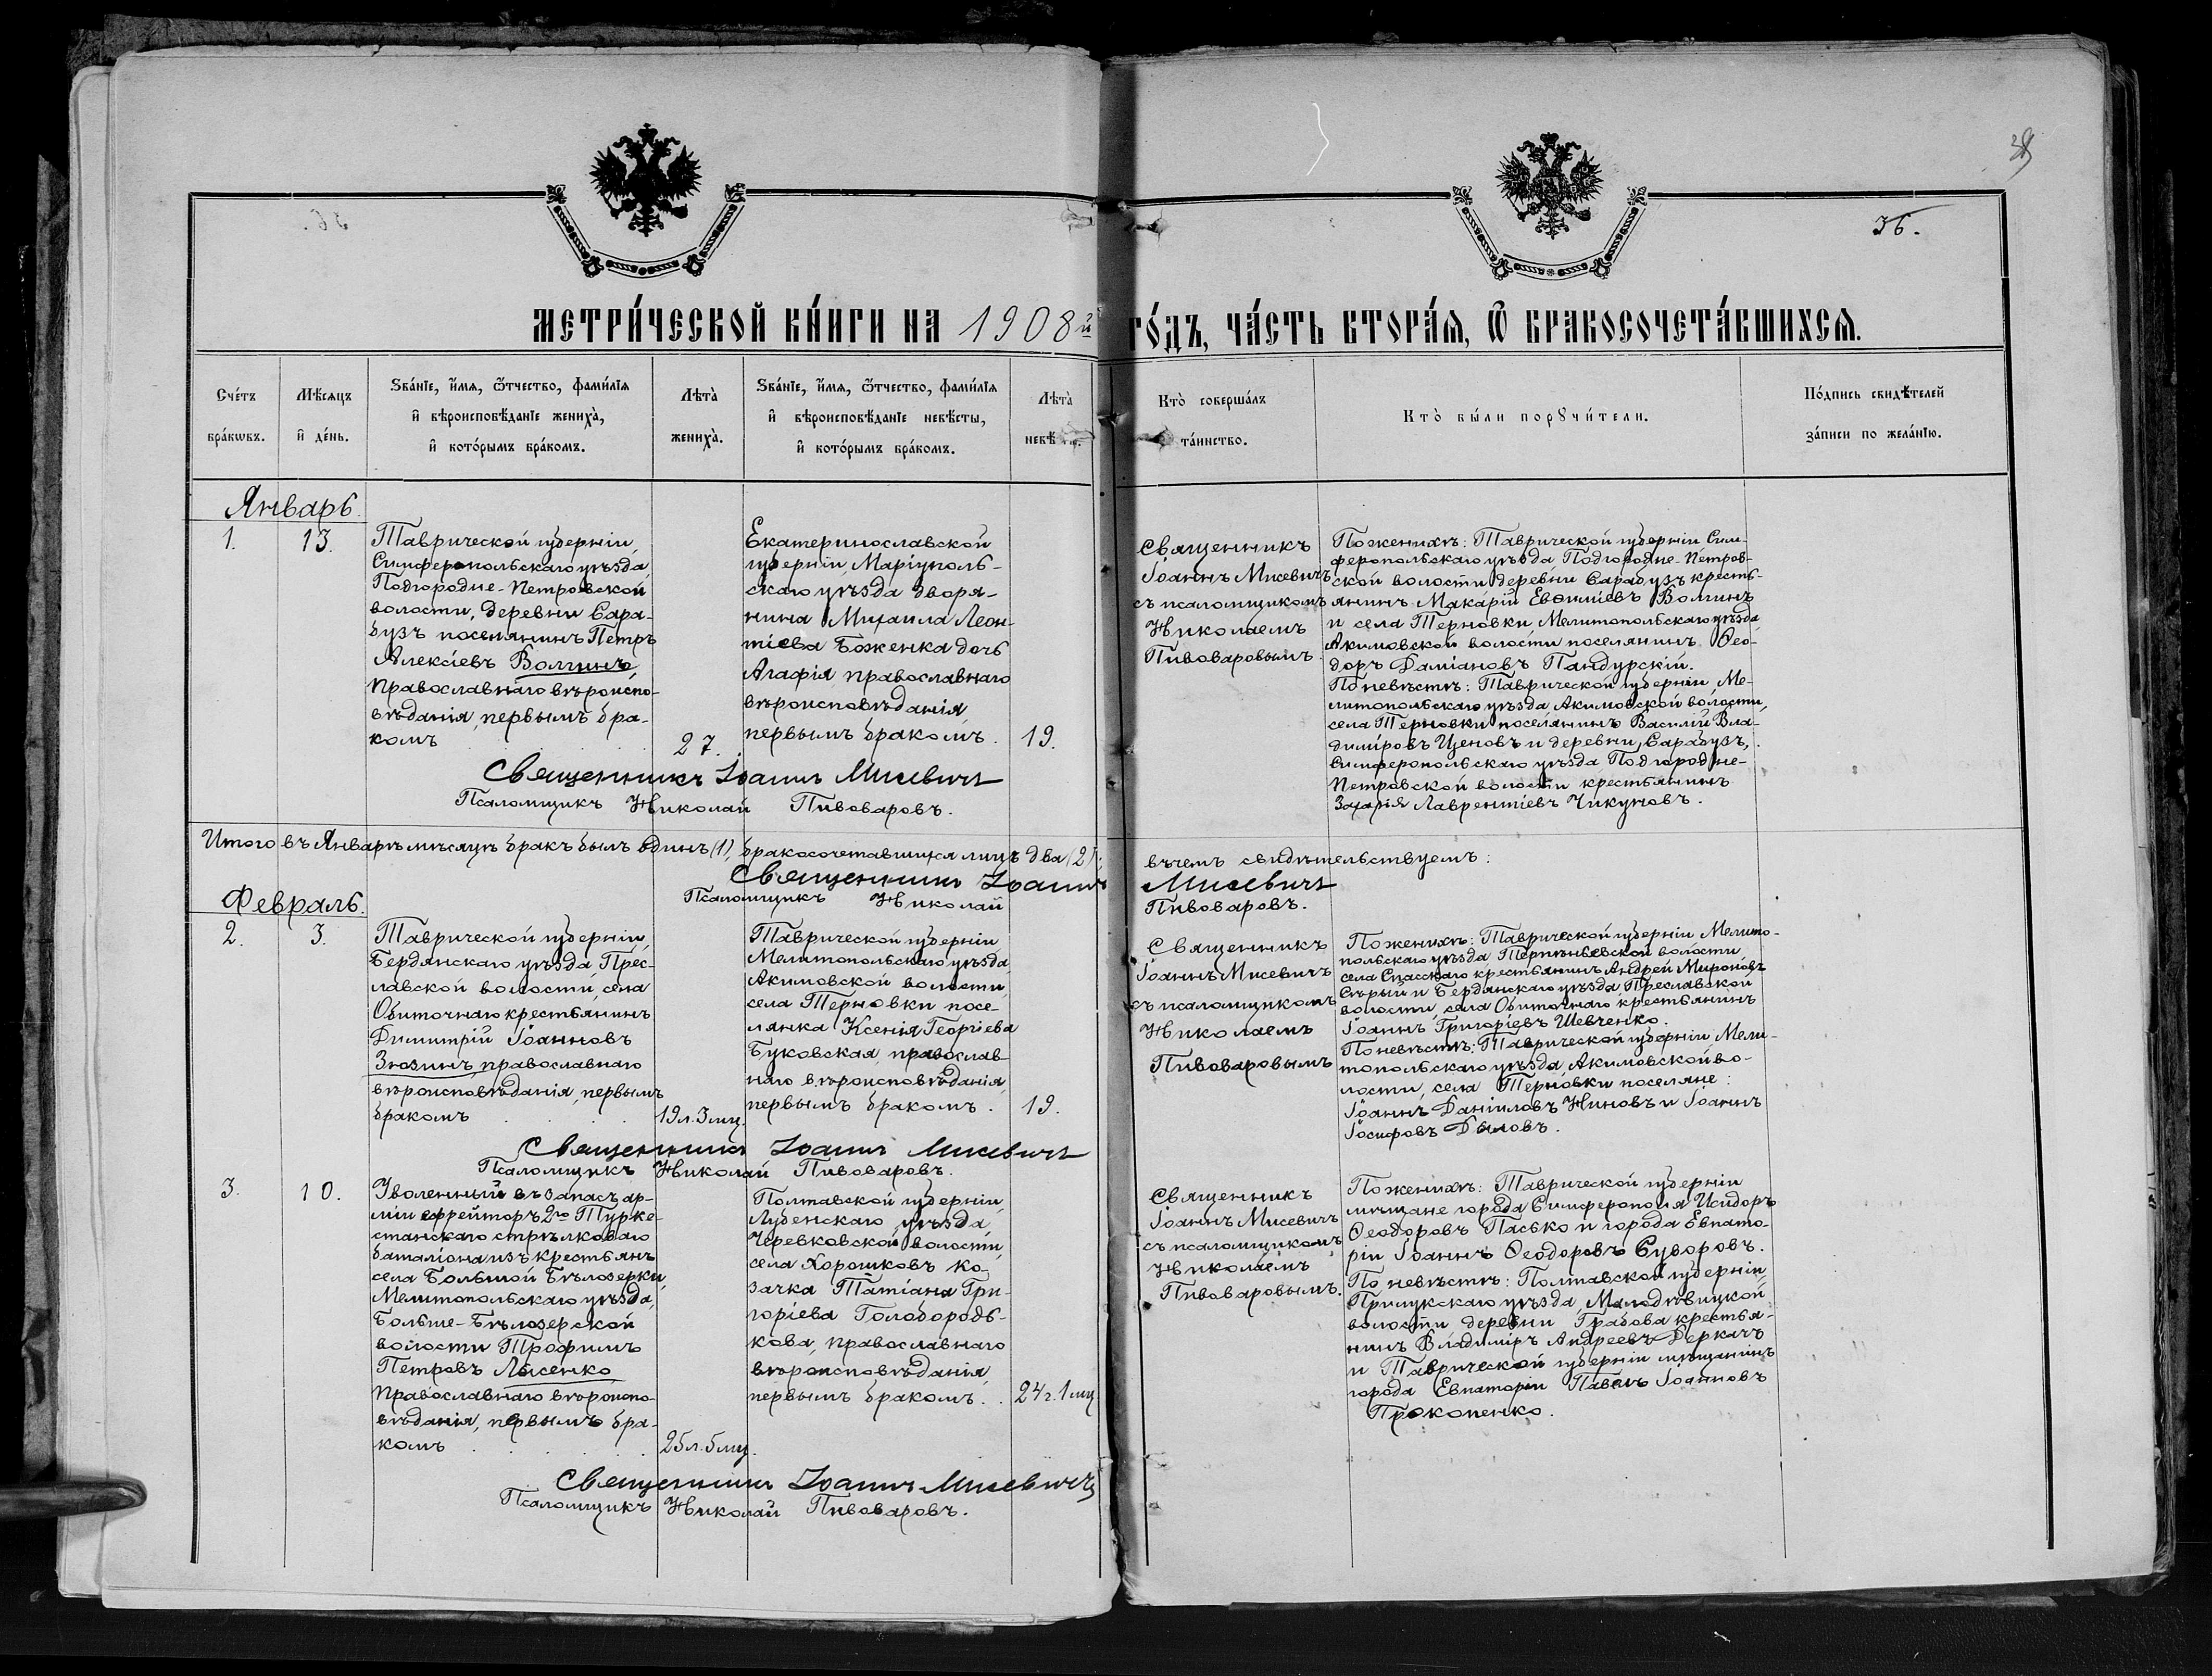 36.
МЕТРИ́ЧЕСКОЙ КНИ́ГИ НА 1908й ГО́ДЪ, ЧА́СТЬ ВТОРА́Я, Ѿ БРАКОСОЧЕТА́ВШИХСЯ.
Сче́тъ бра́кωвъ.
Мѣ́сяцъ и҆ де́нь.
Ѕва́нїе, и҆́мя, ѻ҆́тчество, фами́лїя и҆ вѣроисповѣ́данїе жениха̀, и҆ кото́рымъ бра́комъ.
Лѣта̀ жениха̀.
Ѕва́нїе, и҆́мя, ѻ҆́тчество, фами́лїя и҆ вѣроисповѣ́данїе невѣ́сты, и҆ кото́рымъ бра́комъ.
Лѣта̀
Кто̀ соверша́лъ та́инство.
Кто̀ бы́ли порꙋчи́тели.
По́дпись свидѣ́телей за́писи по жела́нїю.
Январь.
1.
13.
Таврической губерніи,
Симферопольскаго уѣзда,
Подгородне-Петровской
волости, деревни Сара-
бузъ поселянинъ Петръ
Алексіевъ Волгинъ,
православнаго вѣроиспо-
вѣданія, первымъ бра-
комъ
27.
Екатеринославской
губерніи, Маріуполь-
скаго уѣзда дворя-
нина Михаила Леон-
тіева Боженка дочь
Агафія, православнаго
вѣроисповѣданія,
первымъ бракомъ.
19.
Священникъ
Іоаннъ Мисевичъ
съ псаломщикомъ
Николаемъ
Пивоваровымъ.
По женихѣ: Таврической губерніи Сим-
феропольскаго уѣзда Подгородне-Петров-
ской волости деревни Сарабузъ кресть-
янинъ Макарій Евѳиміевъ Волгинъ
и села Терновки Мелитопольскаго уѣзда
Акимовской волости поселянинъ Ѳео-
доръ Даміановъ Пандурскій.
По невѣстѣ: Таврической губерніи, Ме-
литопольскаго уѣзда, Акимовской волости,
села Терновки поселянинъ Василій Вла-
диміровъ Ценовъ и деревни Сарабузъ,
Симферопольскаго уѣзда Подгородне-
Петровской волости крестьянинъ
Захарія Лаврентіевъ Чикуновъ.
Священникъ Іоаннъ Мисевичъ
Псаломщикъ Николай Пивоваровъ.
Итого въ Январѣ мѣсяцѣ бракъ былъ одинъ (1), бракосочетавшихся лицъ два (2): въ чемъ свидѣтельствуемъ:
Священникъ Іоаннъ Мисевичъ
Псаломщикъ Николай Пивоваровъ.
Февраль.
2.
3.
Таврической губерніи,
Бердянскаго уѣзда, Прес-
лавской волости, села
Обиточнаго крестьянинъ
Димитрій Іоанновъ
Зюзинъ, православнаго
вѣроисповѣданія, первымъ
бракомъ
19 л. 3 мц.
Таврической губерніи,
Мелитопольскаго уѣзда,
Акимовской волости,
села Терновки посе-
лянка Ксенія Георгіева
Буковская, православ-
наго вѣроисповѣданія,
первымъ бракомъ.
19.
Священникъ
Іоаннъ Мисевичъ
съ псаломщикомъ
Николаемъ
Пивоваровымъ
По женихѣ: Таврической губерніи Мелито-
польскаго уѣзда Терпѣньевской волости
села Спасскаго крестьянинъ Андрей Мироновъ
Сѣрый и Бердянскаго уѣзда Преславской
волости, села Обиточнаго крестьянинъ
Іоаннъ Григоріевъ Шевченко.
По невѣстѣ: Таврической губерніи Мели-
топольскаго уѣзда, Акимовской во-
лости, села Терновки поселяне:
Іоаннъ Даніиловъ Ниновъ и Іоаннъ
Іосифовъ Дыловъ.
Священникъ Іоаннъ Мисевичъ
Псаломщикъ Николай Пивоваровъ.
3.
10.
Уволенный въ запасъ ар-
міи ефрейторъ 2го Турке-
станскаго стрѣлковаго
баталіона изъ крестьянъ
села Большой Бѣлозерки,
Мелитопольскаго уѣзда,
Больше-Бѣлозерской
волости Трофимъ
Петровъ Лысенко,
православнаго вѣроиспо-
вѣданія, первымъ бра-
комъ
25 л. 5 мц.
Полтавской губерніи,
Лубенскаго уѣзда,
Черевковской волости,
села Хорошковъ ко-
зачка Татіана Гри-
горіева Голобородь-
кова, православнаго
вѣроисповѣданія,
первымъ бракомъ.
24 г. 1 мц
Священникъ
Іоаннъ Мисевичъ
съ псаломщикомъ
Николаемъ
Пивоваровымъ.
По женихѣ: Таврической губерніи
мѣщане города Симферополя Исидоръ
Ѳеодоровъ Пасько и города Евпато-
ріи Іоаннъ Ѳеодоровъ Суворовъ.
По невѣстѣ: Полтавской губерніи,
Прилукскаго уѣзда, Малодѣвицкой
волости деревни Грабова крестья-
нинъ Владиміръ Андреевъ Деркачъ
и Таврической губерніи мѣщанинъ
города Евпаторіи Павелъ Іоанновъ
Прокопенко.
Священникъ Іоаннъ Мисевичъ
Псаломщикъ Николай Пивоваровъ.